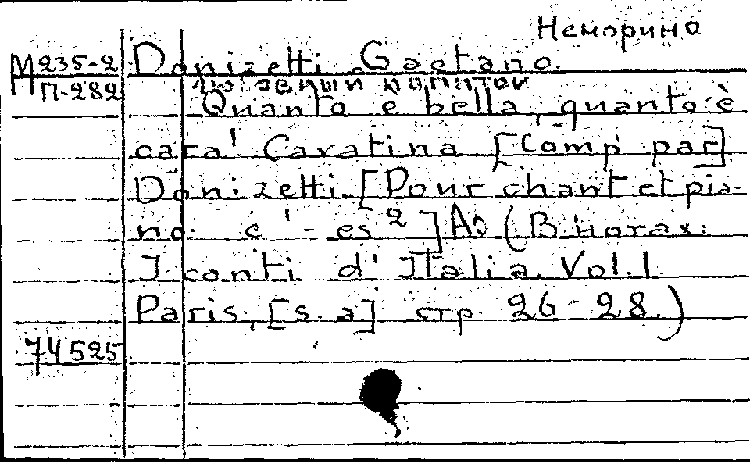 Неморино
М235-2 Donizetti Gaetano.
П-282 Любовный напиток
Quanto e bella, quanto è
cara! Cavatina [Comp par]
Donizetti. [Pour chant et pia-
no. c¹-es²] As (В нотах:
I conti d'Italia. Vol. 1
Paris, [s. a] стр 26-28.)
74525